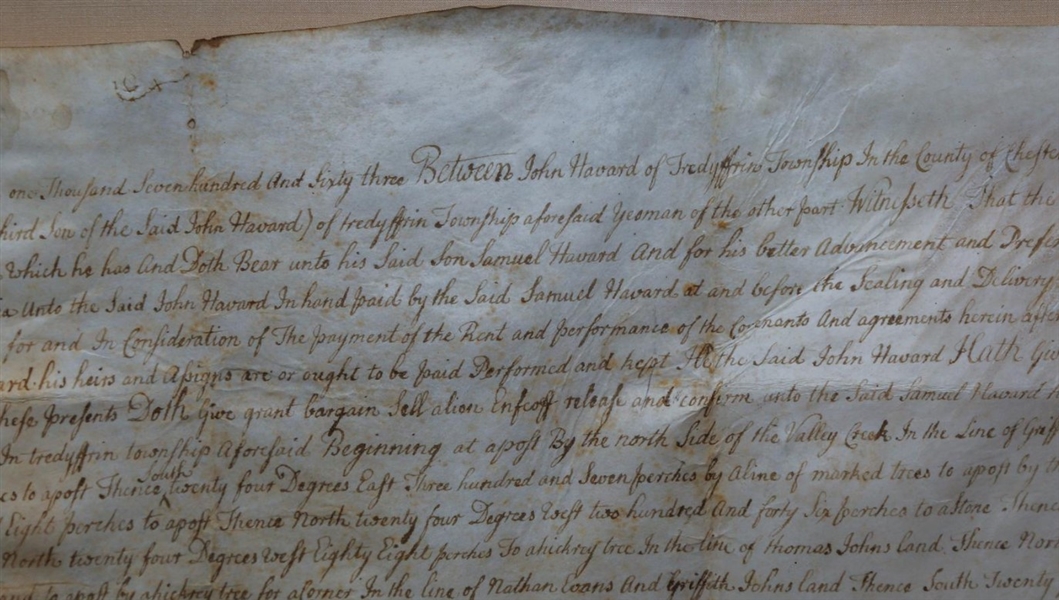 one Thousand Seven hundred And Sixty three Between John Havard of Tredyffrin Township In the County of Cheste
hird Son of the Said John Havard) of tredyffrin Township aforesaid Yeoman of the other part Witnesseth That the
Which he has And Doth Bear unto his Said Son Samuel Havard And for his better Advancement and Prefe
Unto the Said John Havard In hand paid by the Said Samuel Havard at and before the Sealing and Delivery
for and In Consideration of The payment of the Rent and performance of the Covenants And agreements herein after
ard his heirs and Assigns are or ought to be paid Performed and kept He the Said John Havard Hath
hese presents Doth Give grant bargain Sell alien Enfeoff release and confirm unto the Said Samuel Havard
In tredyffrin township Aforesaid Beginning at a post By the north Side of the Valley Creek In the Line of Griff
es to apost Thence South twenty four Degrees East Three hundred and Seven perches by Aline of marked trees to apost by
Eight perches to apost Thence North twenty four Degrees West two hundred And forty Six perches to a stone Thence
North twenty four Degrees West Eighty Eight perches To ahickrey tree In the line of thomas Johns land Thence Nor
and to apost by ahickrey tree for acorner In the line of Nathan Evans And Griffith Johns land Thence South Twenty